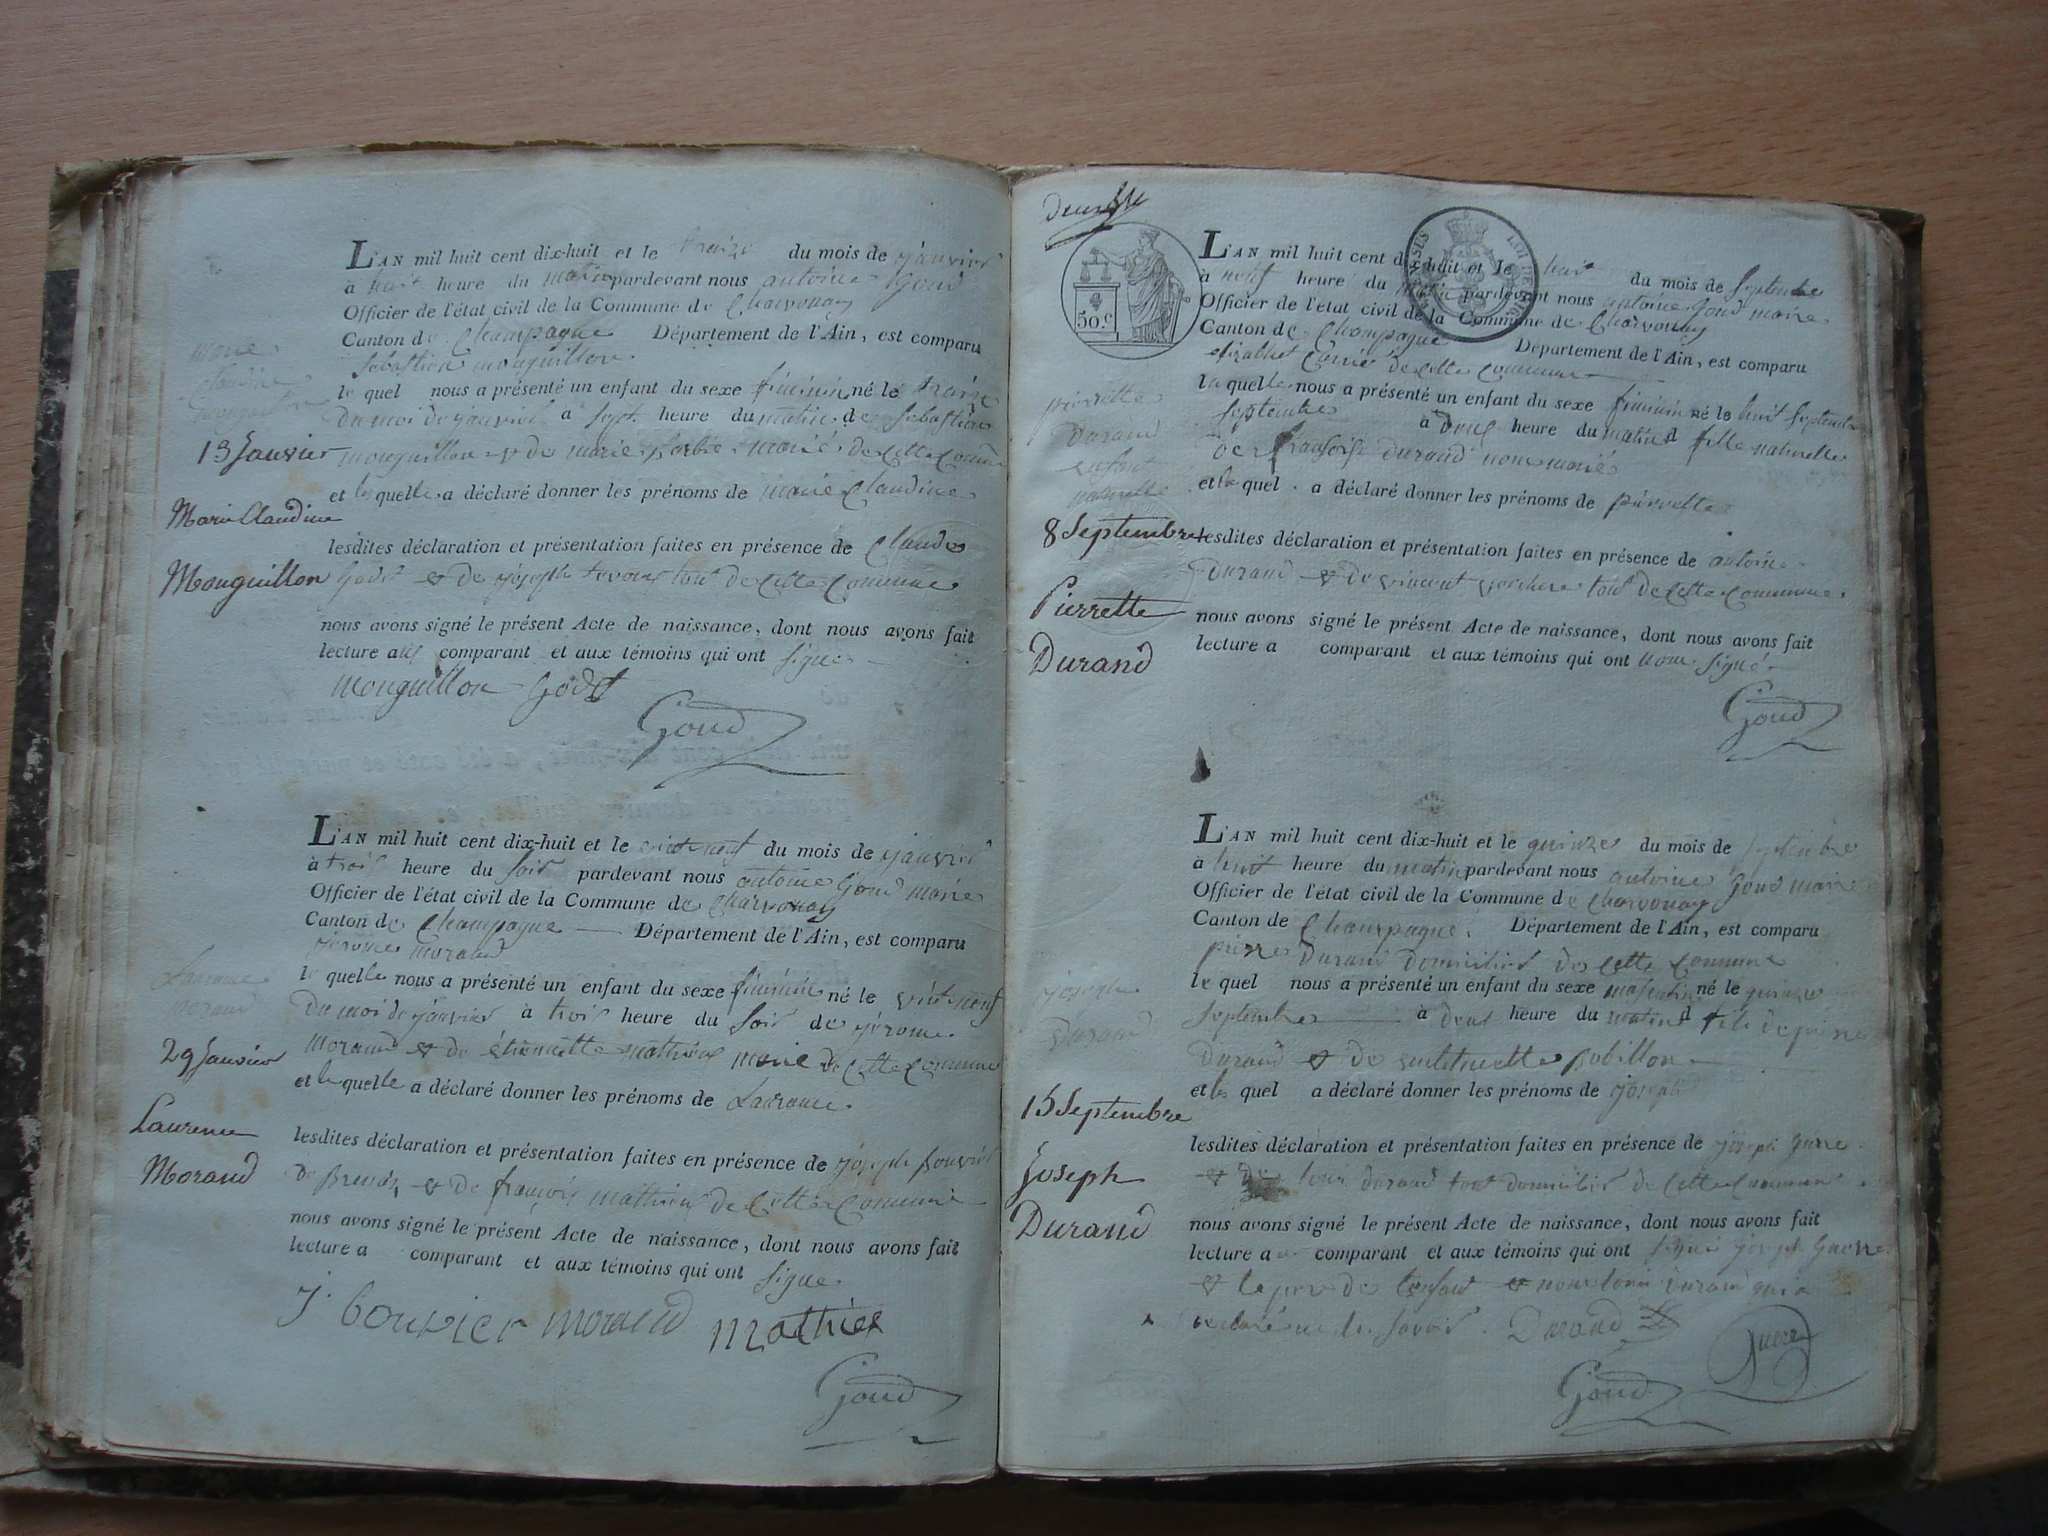 L'AN mil huit cent dix-huit et le treize du mois de janvier
à huit heure du matin pardevant nous antoine Goud
Officier de l'état civil de la Commune de Charvonay
Canton de Champagne Département de l'Ain, est comparu
Sébastien mouguillon
le quel nous a présenté un enfant du sexe féminin né le treize
du moi de janvier à sept heure du matin de Sébastien
mouguillon & de marie marié de Cette Comune
et le quelle a déclaré donner les prénoms de marie Claudine
lesdites déclaration et présentation faites en présence de Claude
Godet & de joseph tout de Cette Commune
nous avons signé le présent Acte de naissance, dont nous avons fait
lecture aux comparant et aux témoins qui ont signe
mouguillon Godet
Goud
marie
claudine
mouguillon
13 Janvier
Marie Claudine
Mouguillon
L'AN mil huit cent dix-huit et le vint neuf du mois de janvier
à trois heure du soir pardevant nous antoine Goud maire
Officier de l'état civil de la Commune de Charvonay
Canton de Champagne Département de l'Ain, est comparu
jérome morand
le quelle nous a présenté un enfant du sexe féminin né le vint neuf
du moi de janvier à trois heure du soir de jérome
morand & de étiennette mathieu marié de Cette Commune
et le quelle a déclaré donner les prénoms de Laurance
lesdites déclaration et présentation faites en présence de joseph bouvier
de & de françois mathieu de Cette Comune
nous avons signé le présent Acte de naissance, dont nous avons fait
lecture a comparant et aux témoins qui ont signe
J. bouvier morand mathieu
Goud
Laurance
morand
29 Janvier
Laurence
Morand
50 c
L'AN mil huit cent dix-huit et le huit du mois de Septembre
à neuf heure du matin pardevant nous antoine Goud maire
Officier de l'état civil de la Commune de Charvonay
Canton de Champagne Département de l'Ain, est comparu
de Cette Commune
la quelle nous a présenté un enfant du sexe féminin né le huit Septembre
Septembre à deux heure du matin fille naturelle
de fransoise durand non marié
et la quel a déclaré donner les prénoms de pierrette
lesdites déclaration et présentation faites en présence de antoine
Durand & de vincent tout de Cette Commune
nous avons signé le présent Acte de naissance, dont nous avons fait
lecture a comparant et aux témoins qui ont non signé
Goud
pierrette
Durand
enfant
naturelle
8 Septembre
Pierrette
Durand
L'AN mil huit cent dix-huit et le quinze du mois de septembre
à huit heure du matin pardevant nous antoine Goud maire
Officier de l'état civil de la Commune de Charvonay
Canton de Champagne Département de l'Ain, est comparu
pierre Durand domicilier de Cette Commune
le quel nous a présenté un enfant du sexe masculin né le quinze
Septembre à deux heure du matin fils de pierre
Durand & de pobillon
et le quel a déclaré donner les prénoms de joseph
lesdites déclaration et présentation faites en présence de joseph
& de louis durand tout domicilier de Cette Commune
nous avons signé le présent Acte de naissance, dont nous avons fait
lecture a comparant et aux témoins qui ont signé joseph
& le pere de l'enfant & non louis durand qui a
déclaré ne le savoir. Durand
Goud
joseph
Durand
15 Septembre
Joseph
Durand